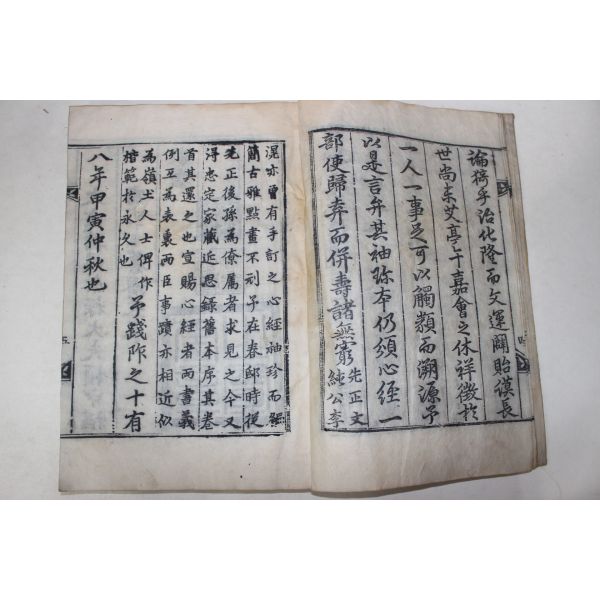 論猗乎治化隆而文運闢貽謨長
世尚矣艾亭午嘉會之休祥徵於
一人一事足可以觸類而溯源予
以是言弁其袖珍本仍頒心經一
部使歸弆而併壽諸無窮
先正文
純公李
滉亦嘗有手訂之心經袖珍而
簡古雅點畫不刓予在春邸時從
先正後孫為僚屬者求見之今又
得忠定家藏近思錄舊本序其卷
首其還之也宣賜心經者兩書義
例互為表裏兩臣事蹟亦相近似
為嶺土人士俾作
楷範於永久也
予踐阼之十有
八年甲寅仲秋也